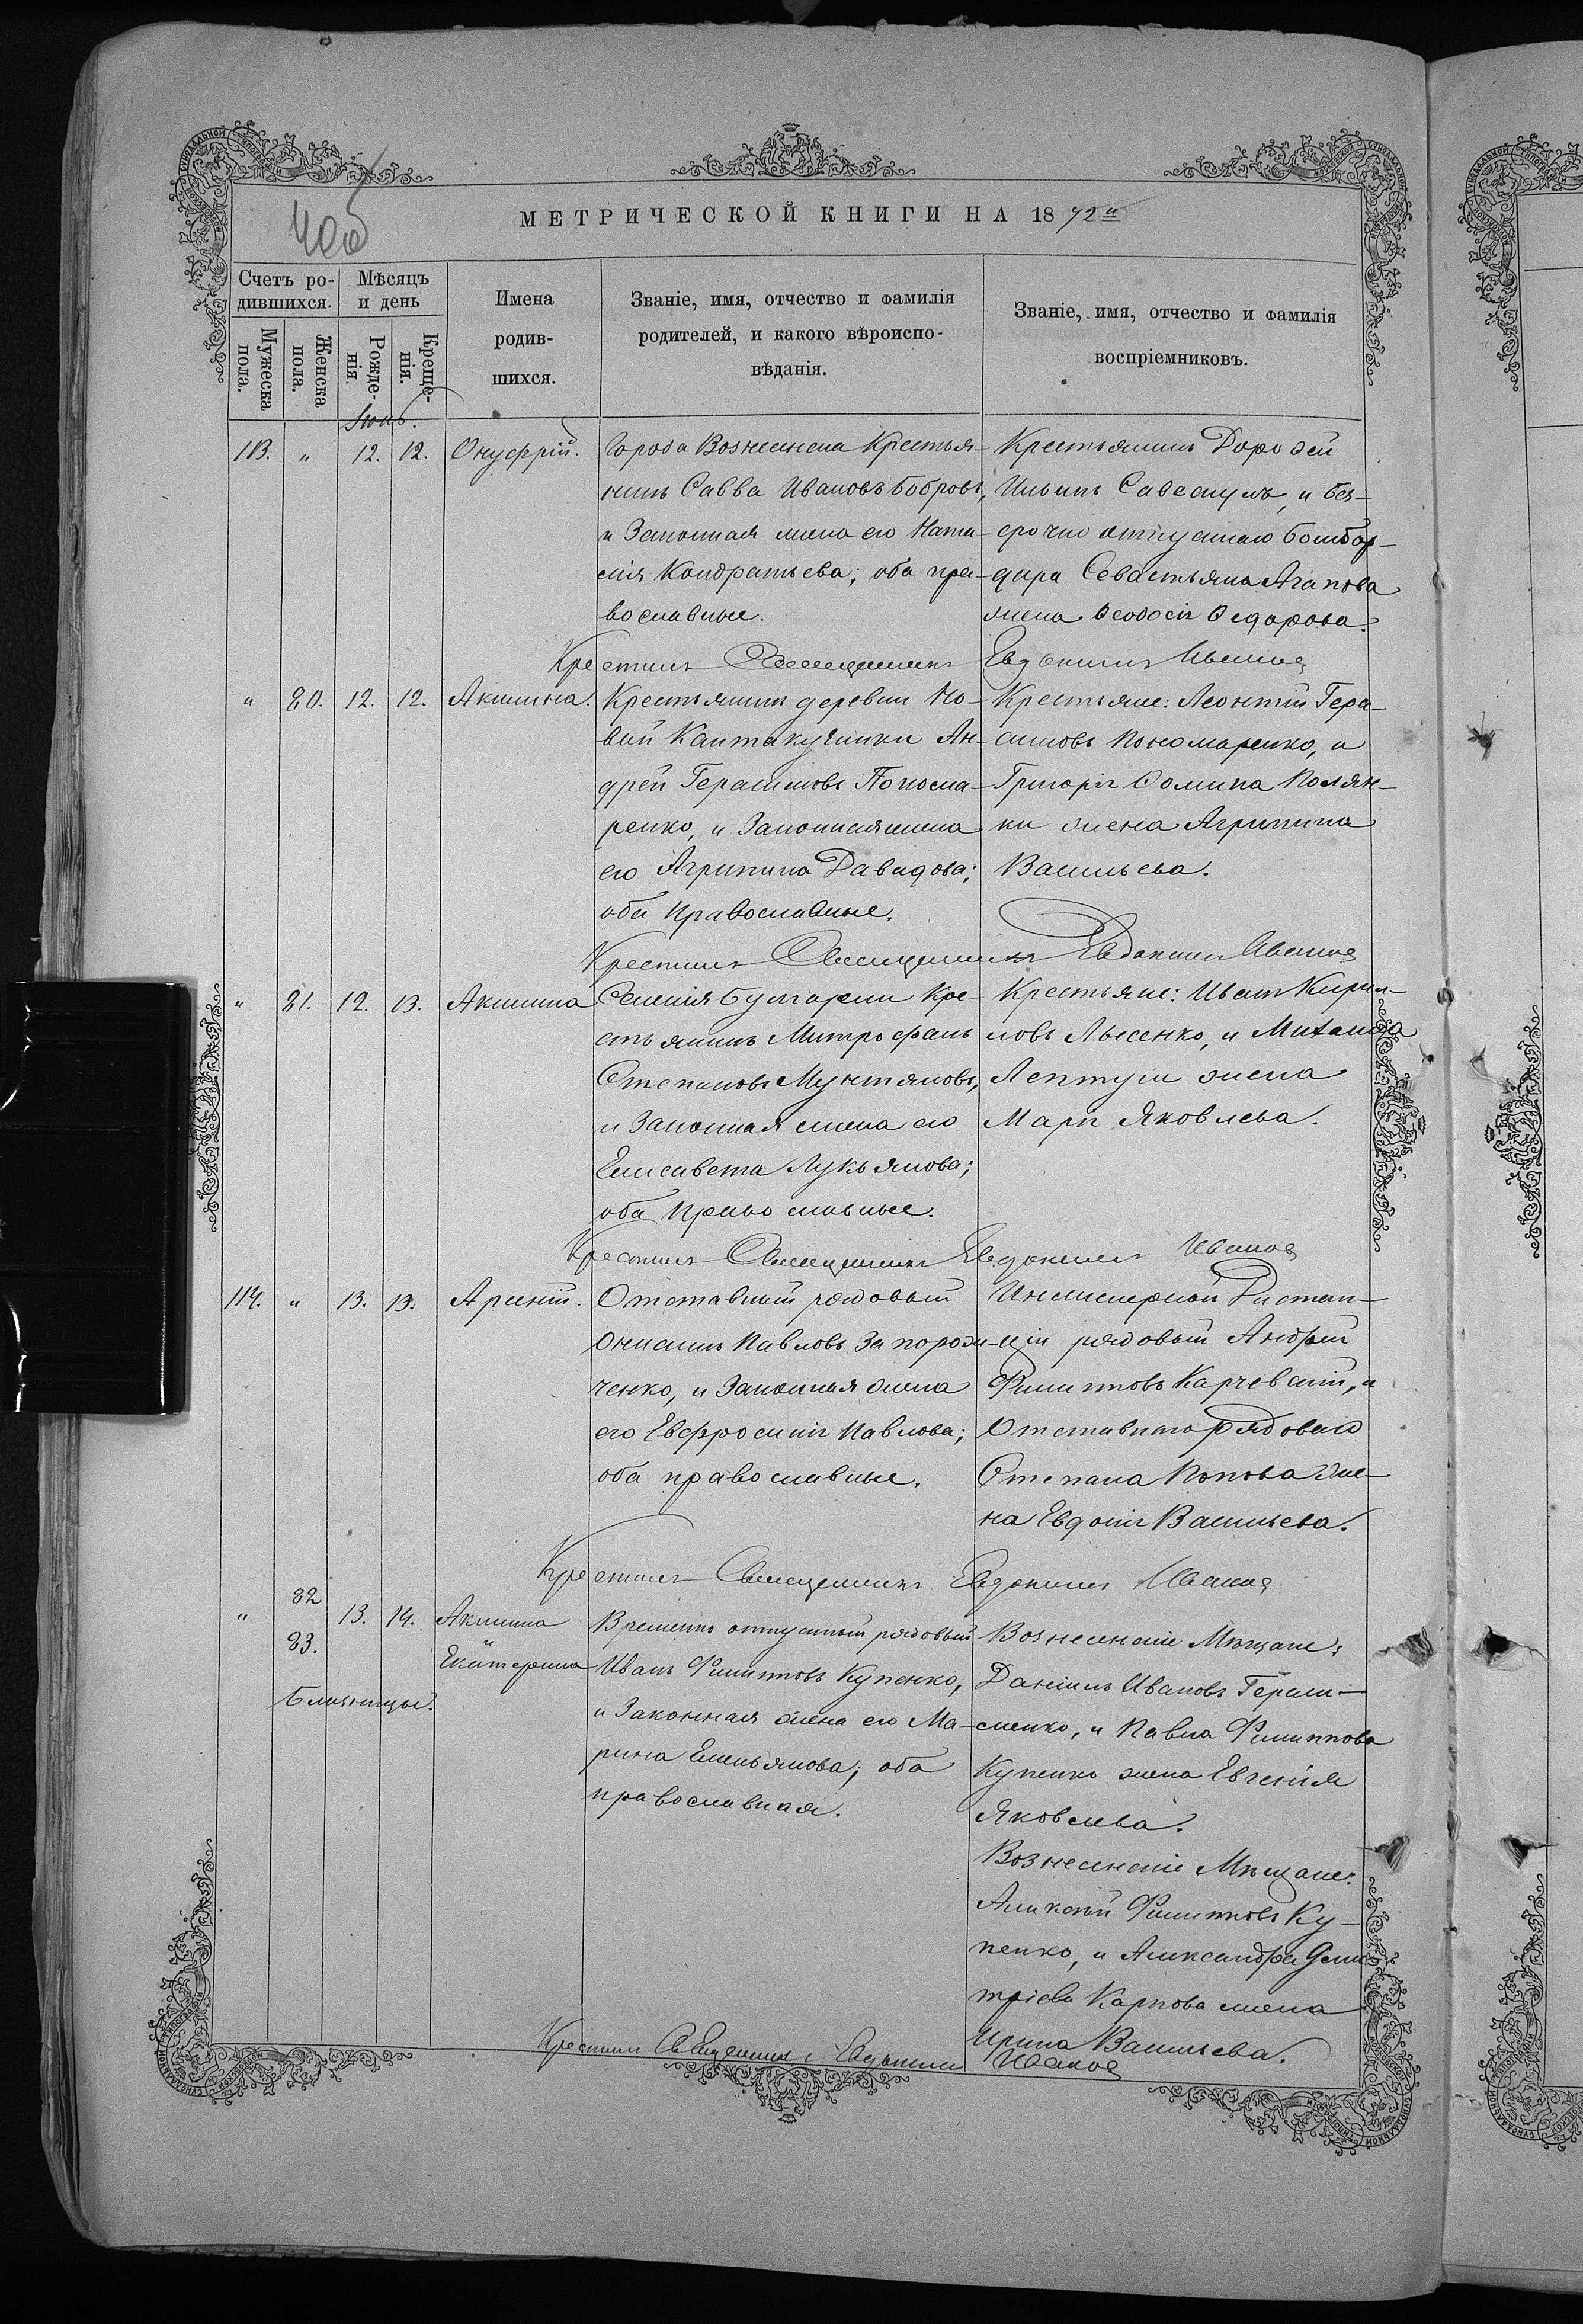 МЕТРИЧЕСКОЙ КНИГИ НА 1872 й
Счетъ ро-
дившихся.
Мужеска
пола.
Женска
пола.
Мѣсяцъ
и день
Рожде-
нія.
Креще-
нія.
Имена
родив-
шихся.
Званіе, имя, отчество и фамилія
родителей, и какого вѣроиспо-
вѣданія.
Званіе, имя, отчество и фамилія
воспріемниковъ.
Іюнь.
113. " 12. 12. Онуфрій.
Города Вознесенска Крестья-
нинъ Савва Ивановъ Бобровъ,
и Законная жена его Ната-
лія Кондратьева; оба пра-
вославные.
Крестьянинъ Дорофей
Ильинъ и без-
срочно отпускнаго Бомбар-
дира Севастьяна Агапова
жена Ѳеодосія Ѳедорова.
Крестилъ Священникъ Евдокимъ Иванов
" 80. 12. 12. Акилина.
Крестьянинъ деревни Но-
вой Кантакузинки Ан-
дрей Герасимовъ Понома-
ренко, и Законная жена
его Агрипина Давидова;
оба Православные.
Крестьяне: Леонтій Гера-
симовъ Пономаренко, и
Григорія Ѳомина Полян-
ки жена Агрипина
Васильева.
Крестилъ Священникъ Евдокимъ Иванов
" 81. 12. 13. Акилина
Селенія Булгарки Кре-
стьянинъ Митрофанъ
Степановъ Мунтяновъ,
и Законная жена его
Елисавета Лукьянова;
оба Православные.
Крестьяне: Иванъ Кирил-
ловъ Лысенко, и Михаила
Лептуги жена
Марія Яковлева.
Крестилъ Священникъ Евдокимъ Иванов
114. " 13. 13. Арсеній.
Отставный рядовый
Онисимъ Павловъ Запорож-
ченко, и Законная жена
его Евфросинія Павлова;
оба православные.
Инженерной Дистан-
ціи рядовый Андрей
Филипповъ Карчевскій, и
Отставнаго рядоваго
Степана Попова же-
на Евдокія Васильева.
Крестилъ Священникъ Евдокимъ Иванов
" 82 13. 14. Акилина
83. Екатерина
Близнецы.
Временно отпускный рядовый
Иванъ Филипповъ Купенко,
и Законная жена его Ма-
рина Емельянова; оба
православная.
Вознесенскіе Мѣщане:
Даніилъ Ивановъ Гераси-
менко, и Павла Филиппова
Купенко жена Евгенія
Яковлева.
Вознесенскіе Мѣщане:
Филипповъ Ку-
пенко, и Александра Дми-
тріева Карпова жена
Ирина Васильева.
Крестилъ Священникъ Евдокимъ Иванов